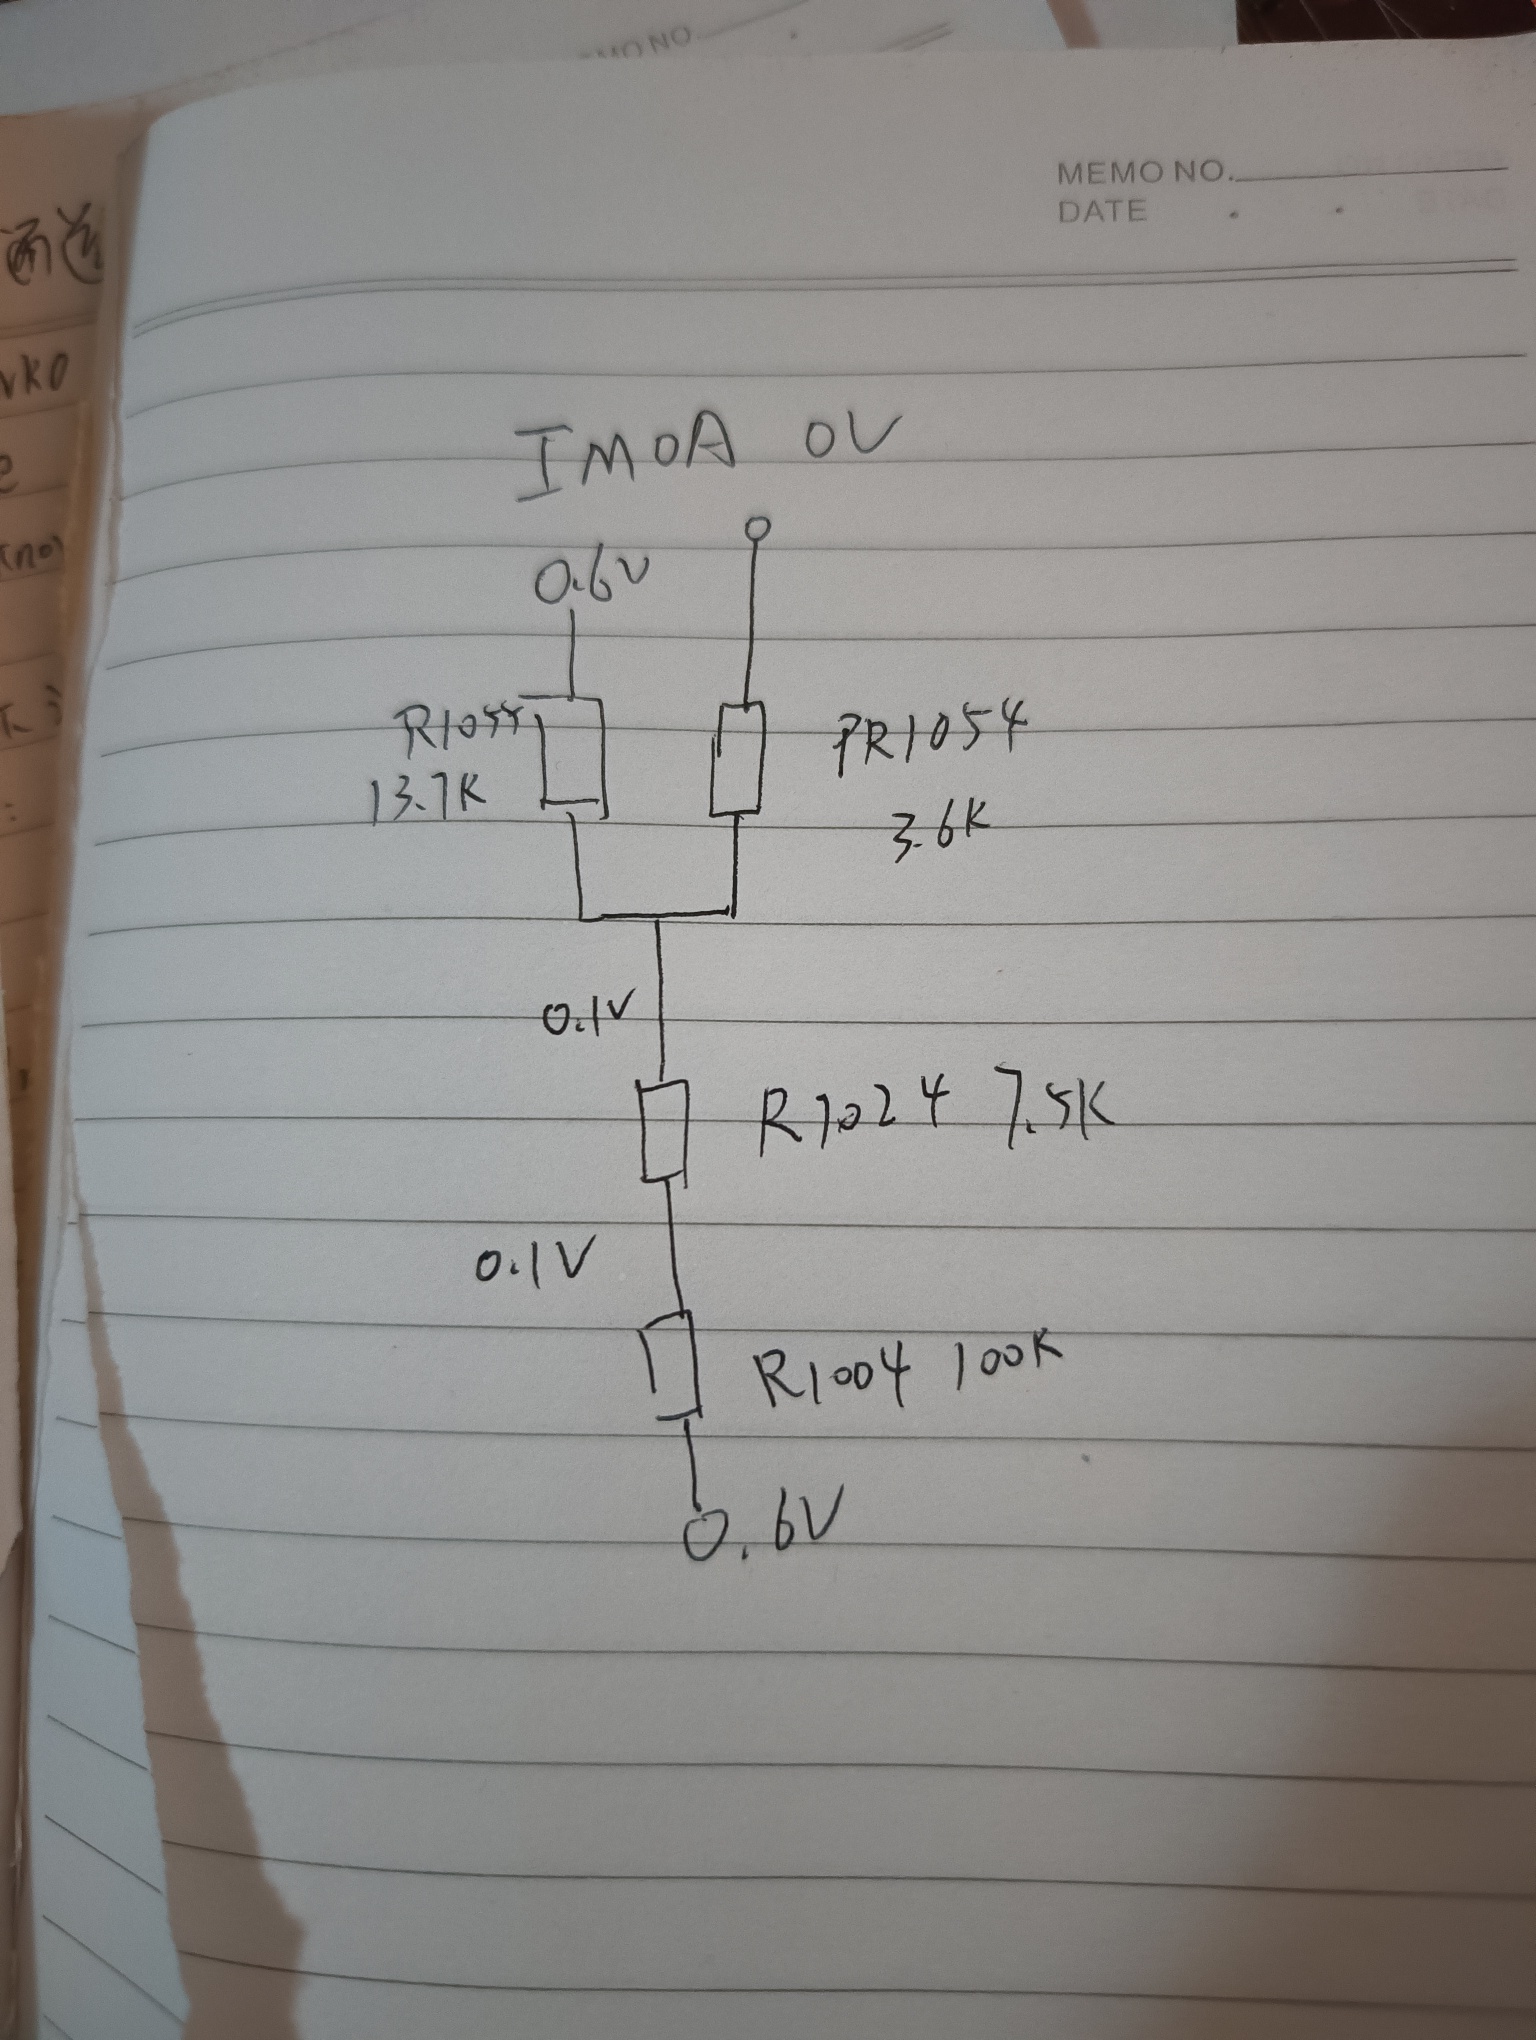 MO NO.
MEMO NO.
DATE . .
IMOA 0V
0.6V
R1055
13.7K
PR1054
3.6K
0.1V
R1024 7.5K
0.1V
R1004 100K
0.6V